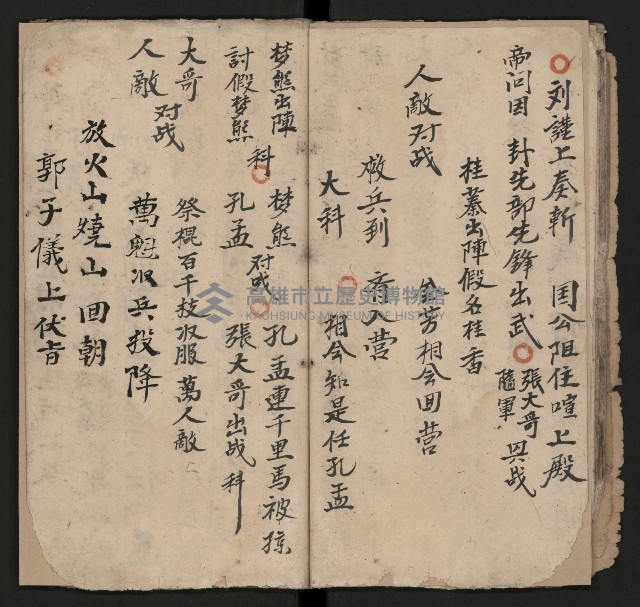 刘謹上奏斬 国公阻住喧上殿
帝问因 封先郭先鋒出武 張大哥 隨軍 興战
桂蓁出陣假名桂香
人敵对战 金芳相会回营
救兵到 夜入营
大科 相会知是任孔孟
梦熊出陣 科 梦熊 对战 孔孟連千里馬被掠
討假梦熊 孔孟 張大哥出战科
大哥 祭棍百千技収服萬人敵
人敵 对战 萬魁収兵投降
放火山燒山 回朝
郭子儀上伏旨
高雄市立歷史博物館
KAOHSIUNG MUSEUM OF HISTORY